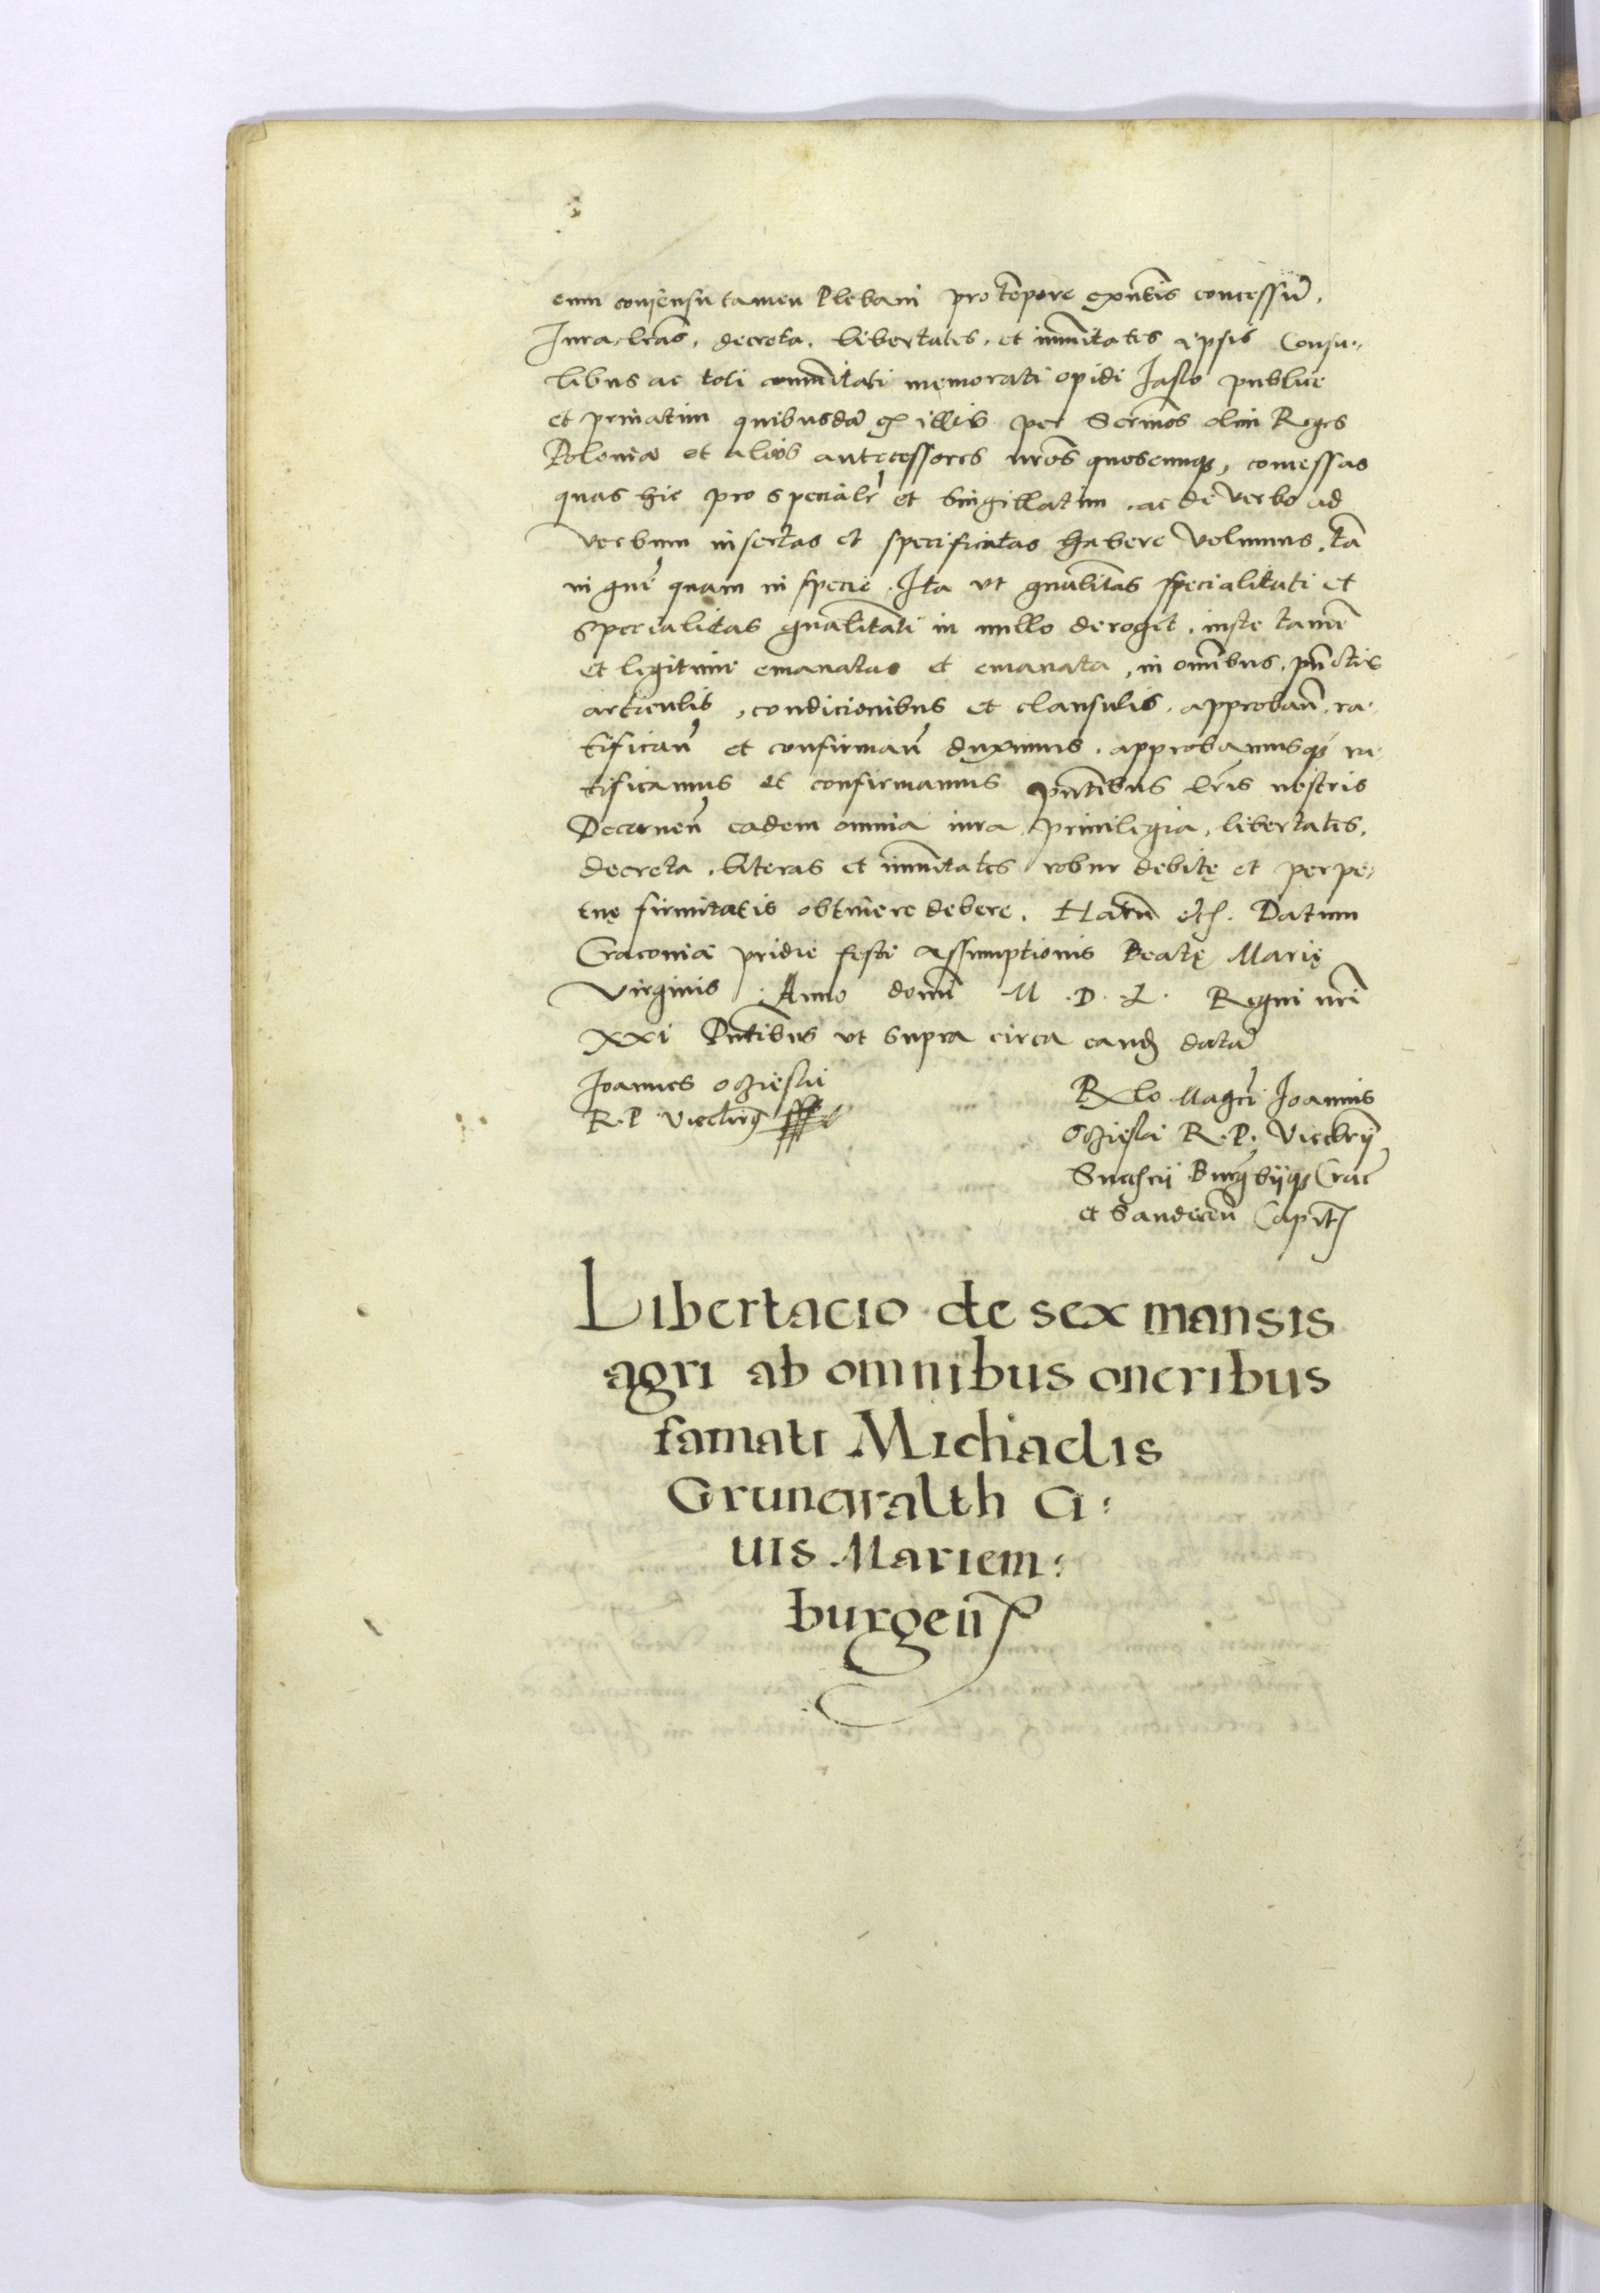 cum consensu tamen Plebani pro tempore exn̄tis concessū,
Iura, lr̄as, decreta, libertates, et im̄unitates ipsis Consu-
libus ac toti com̄unitati memorati opidi Jaslo publice
et priuatim quibusdā ex illis per Sermos olim Reges
Poloniæ et alios antecessores nr̄os quoscunq3, concessas
quas hic pro specialr̄ et singillatim, ac de verbo ad
verbum insertas et specificatas habere volumus, tā
in gn̄e quam in specie. Ita vt gn̄alitas specialitati et
specialitas gn̄alitati in nullo deroget, iuste tamē
et legitime emanatas et emanata, in om̄ibus, punctis
articulis, condicionibus et clausulis, approbañ, ra-
tificañ et confirmañ duximus, approbamusq3 ra-
tificamus et confirmamus pn̄tibus lr̄is nostris
Decerneñ eadem omnia iura, priuilegia, libertates,
decreta, literas et im̄unitates robur debitę et perpe-
tuę firmitatis obtinere debere. Harū etc. Datum
Cracouiæ pridie festi Assumptionis Beatę Marię
Virginis Anno domī M . D . L . Regni nr̄i
XXI Pn̄tibus vt supra circa eand datā
Joannes Oczieski
R. P. Vicecancgr̄
Rlo Magci Joannis
Oczieski R. P. Vicecancrij
Sandecen̄ Capit
Libertacio de sex mansis
agri ab omnibus oneribus
famati Michaelis
Grunewalth Ci:
uis Mariem:
burgen̄